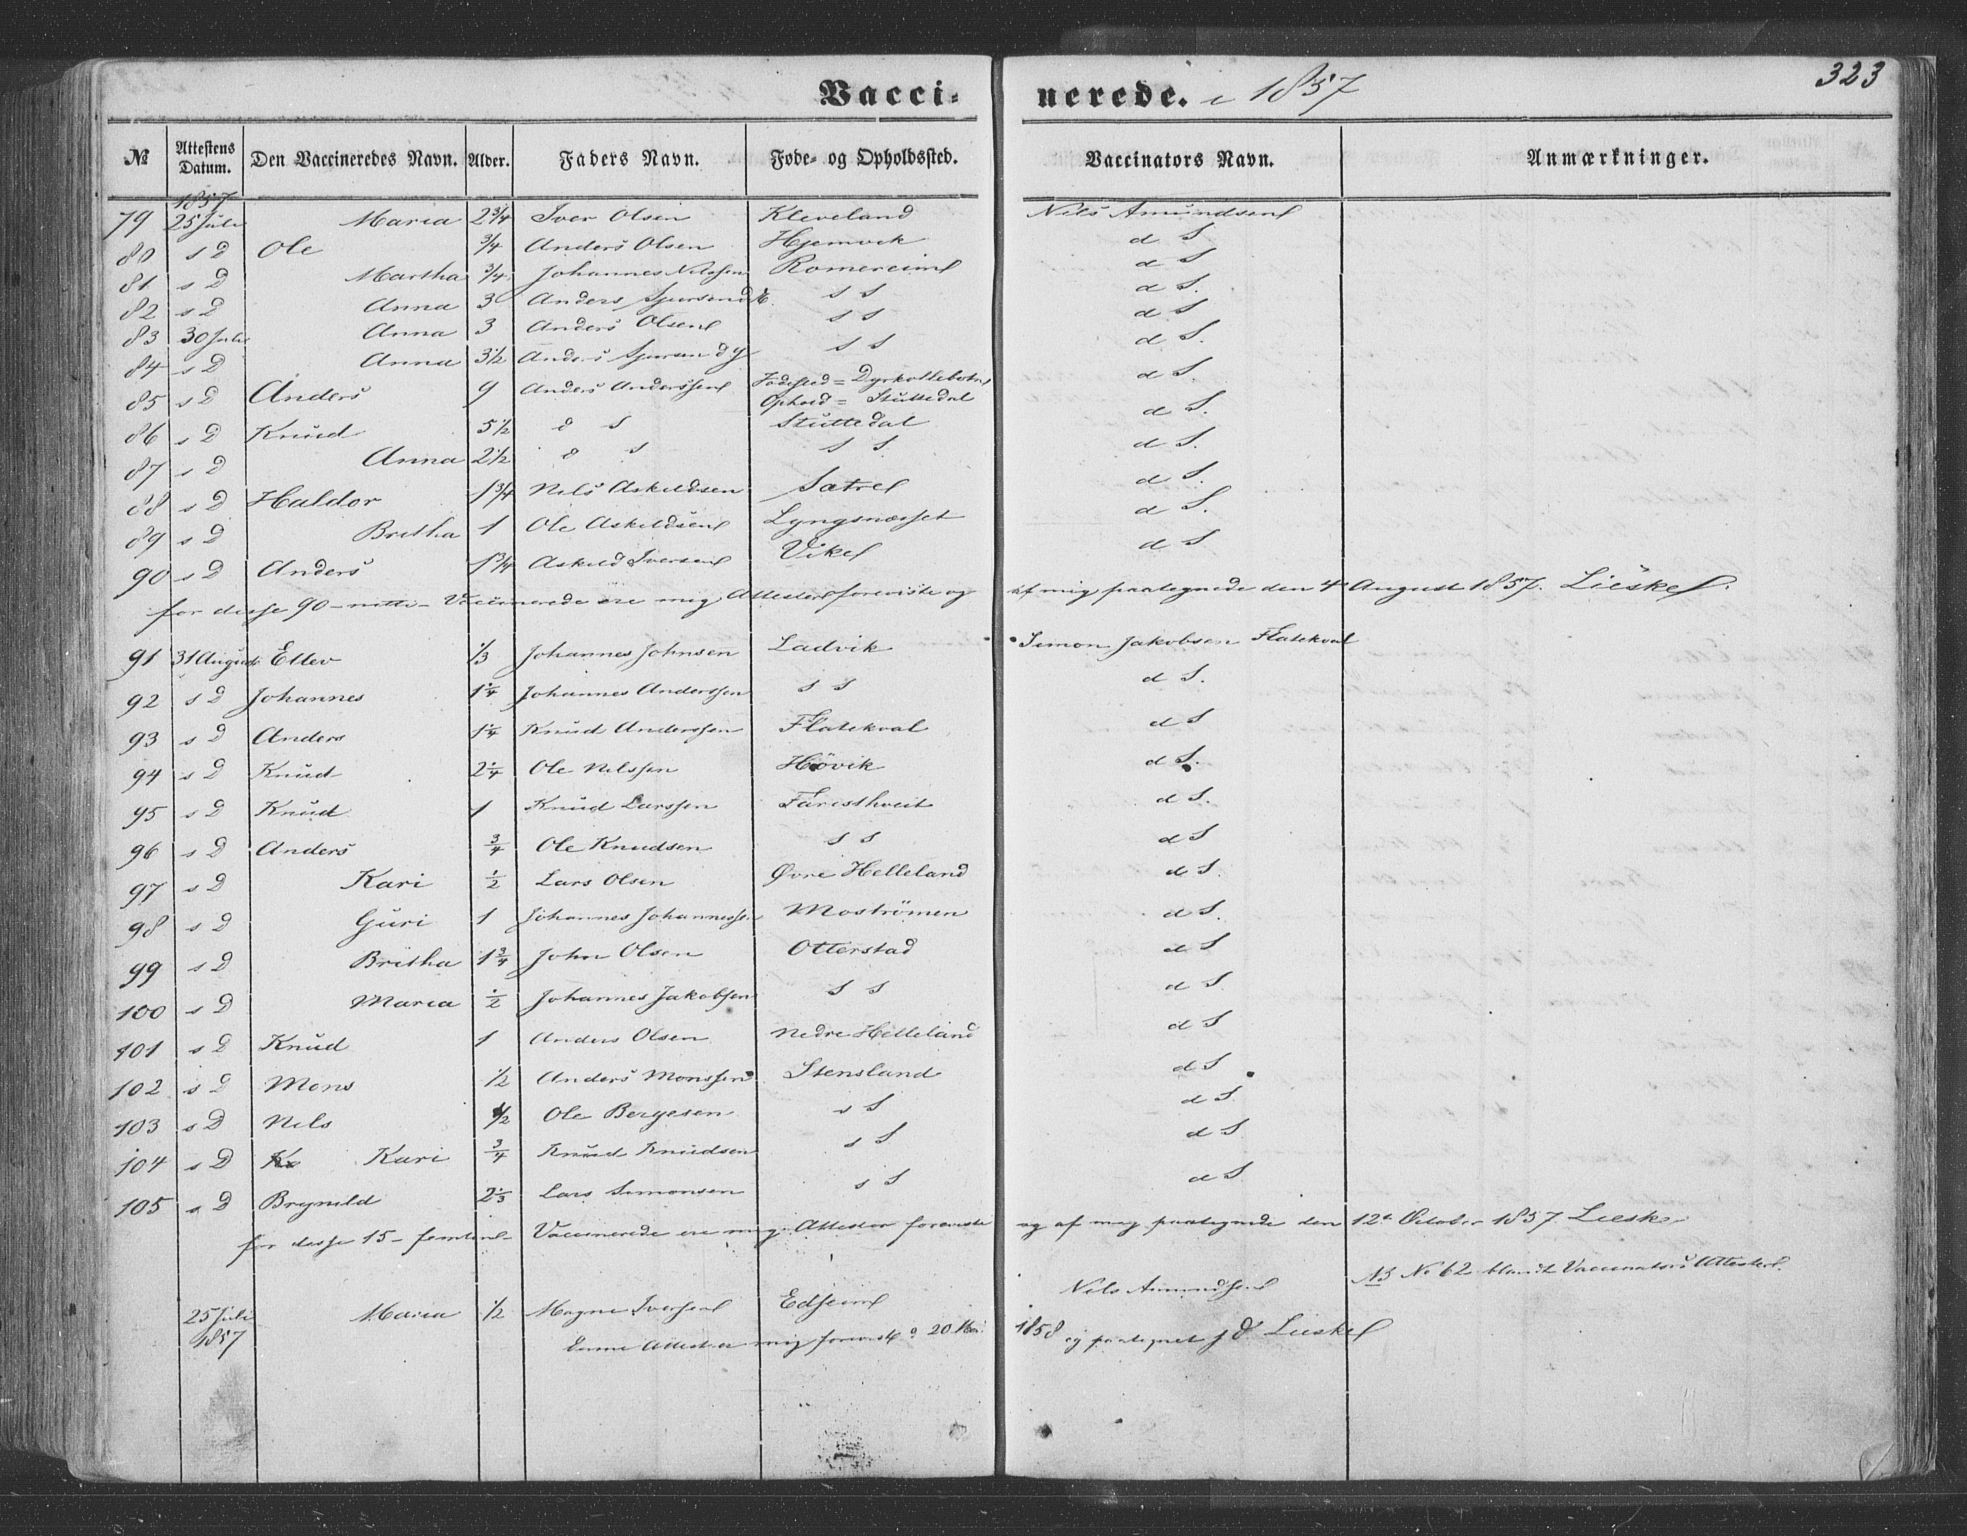 323
Vacci- nerede. i 1857
№ Attestens Datum. Den Vaccineredes Navn. Alder. Faders Navn. Føde- og Opholdssted. Vaccinators Navn. Anmærkninger.
1857
79 25 Juli Maria 2 3/4 Iver Olsen Kleveland Nils Amundsen
80 s D Ole 3/4 Anders Olsen Hjemvik d S
81 s D Martha 3/4 Johannes Nilssen Romereim d S
82 s D Anna 3 Anders s s d S.
83 30 Juli Anna 3 Anders Olsen s s d S
84 s D Anna 3 1/2 Anders s s d S.
85 s D Anders 9 Anders Anderssen Fødested = Dyrkollebotn d S.
Ophold = Stuttedal
86 s D Knud 5 1/2 d s Stuttedal d S.
87 s D Anna 2 1/2 d s s s. d S.
88 s D Haldor 1 3/4 Nils Askeldsen Sætre d S.
89 s D Britha 1 Ole Askeldsen Lyngsnæsset d S.
90 s D Anders 1 3/4 Askeld Iversen Vike d S
for disse 90 - nitti - Vaccinerede ere mig Attester foreviste og af mig paategnede den 4 August 1857. Lieske.
91 31 August Ellev 1/3 Johannes Johnsen Ladvik Simon Jakobsen Flatekval
92 s D Johannes 1 1/4 Johannes Anderssen s s d S.
93 s D Anders 1 1/4 Knud Anderssen Flatekval d S
94 s D Knud 2 1/4 Ole Nilssen Hövik d S.
95 s D Knud 1 Knud Larssen Faresthveit d S.
96 s D Anders 3/4 Ole Knudsen s s d S
97 s D Kari 1/2 Lars Olsen Øvre Helleland d S.
98 s D Guri 1 Johannes Johannessen Moströmen d S.
99 s D Britha 1 3/4 John Olsen Otterstad d S
100 s D Maria 1/2 Johannes Jakobsen s s d S
101 s D Knud 1 Anders Olsen Nedre Helleland d S
102 s D Mons 1/2 Anders Monssen Stensland d S
103 s D Nils 1/2 Ole Bergesen s S d S.
104 s D Ka Kari 3/4 Knud Knudsen s S d S
105 s D Brynild 2 1/3 Lars Simonsen s S d S.
for disse 15 - femten - Vaccinerede ere mig Attester foreviste og af mig paategnede den 12te October 1857 Lieske
25 Juli Maria 1/2 Magne Iversen Edseim Nils Amundsen NB No 62 blandt Vaccinators Attester
1857
Denne Attest er mig forevist d. 20 Mai 1858 og paategnet J d. Lieske